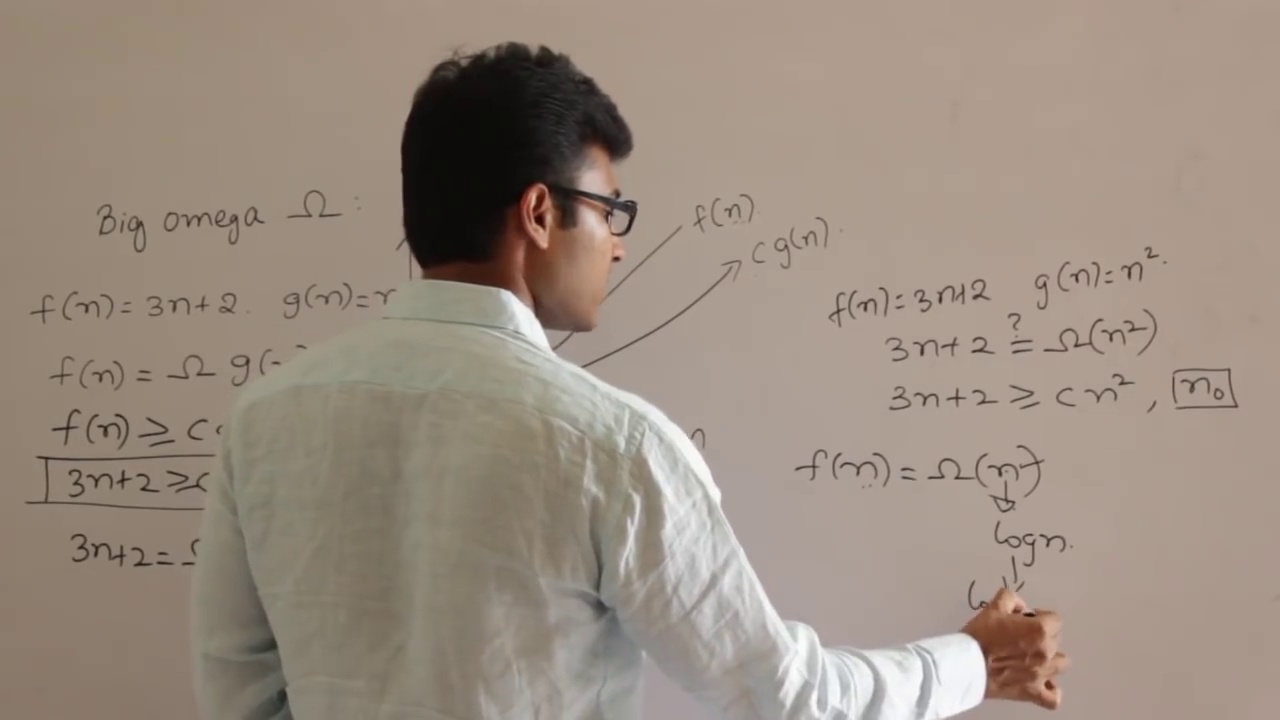 Big omega Ω :
f(n) = 3n+2. g(n)=
f(n) = Ω g(
f(n) ≥ c
3n+2 ≥ c
3n+2 =
f(n)
c g(n).
n
f(n)=3n+2 g(n)=n².
3n+2 ≟ Ω(n²)
3n+2 ≥ c n² , n₀
f(n) = Ω(n)
↓
logn.
↓